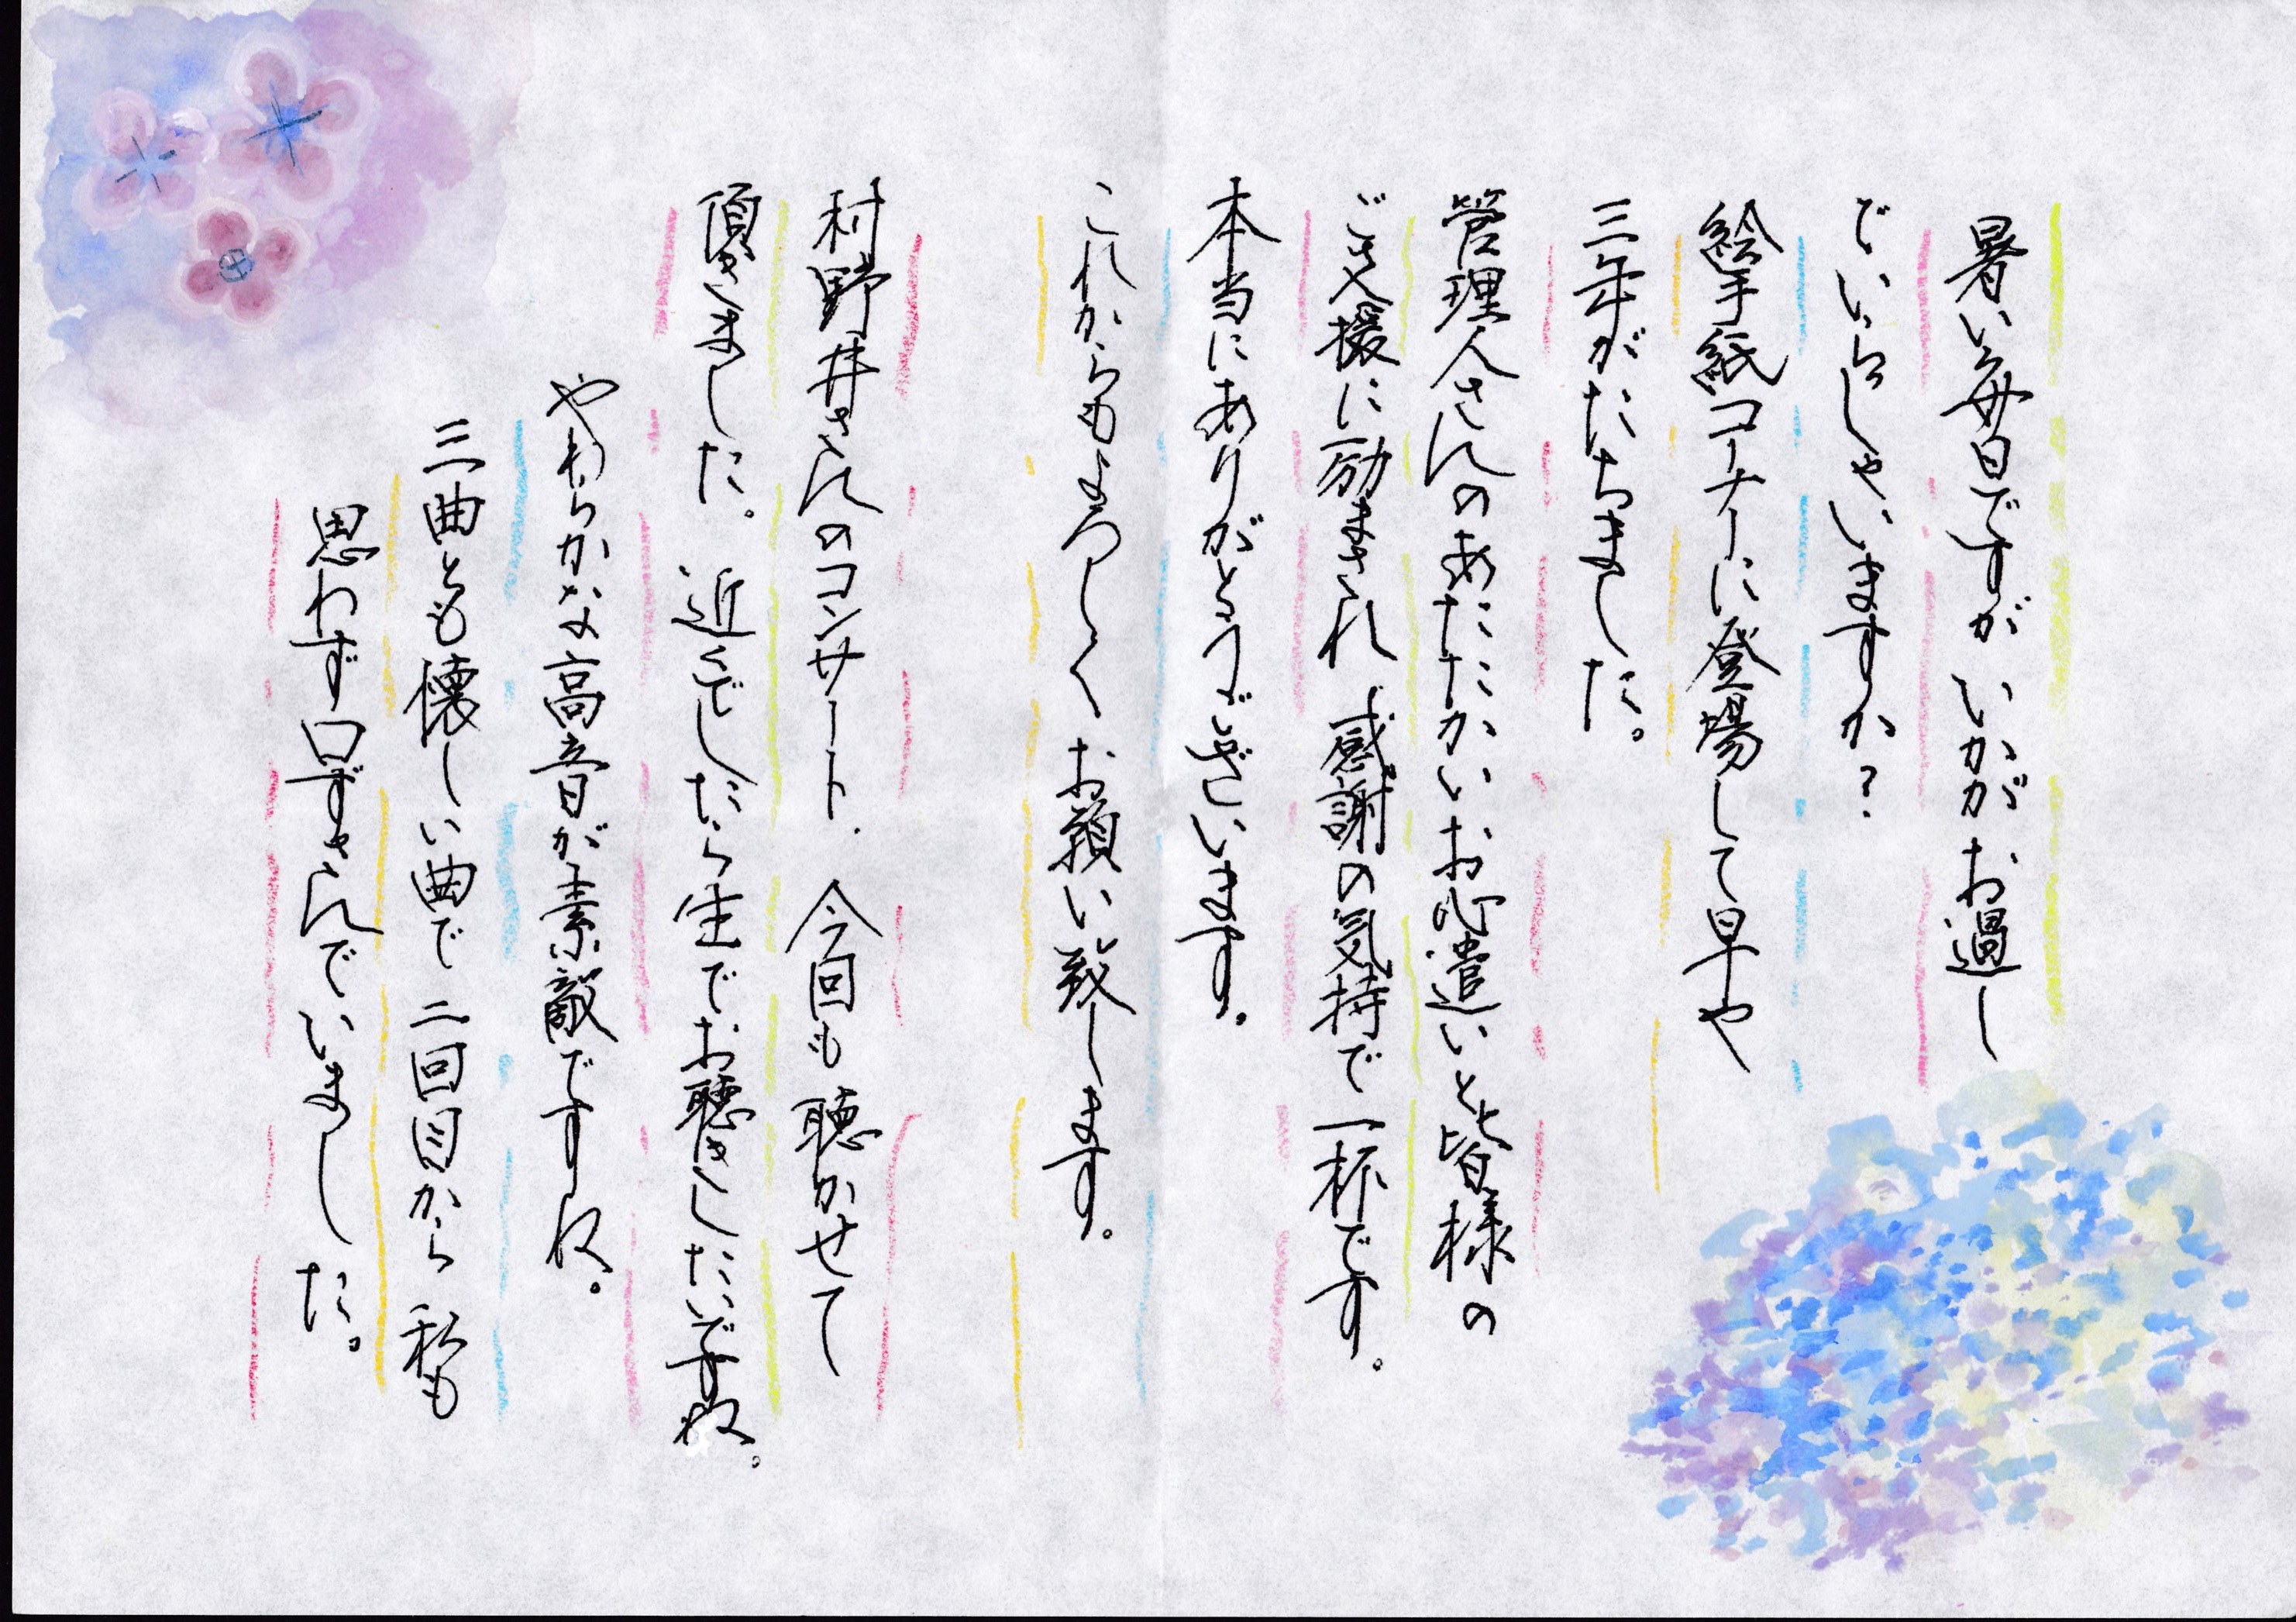 暑い毎日ですが いかがお過し
でいらしゃいますか?
絵手紙コーナーに登場して早や
三年がたちました。
管理人さんのあたたかいお心遣いと皆様の
ご支援に励まされ、感謝の気持で一杯です。
本当にありがとうございます。
これからもよろしくお願い致します。
村野井さんのコンサート、今回も聴かせて
頂きました。近くでしたら生でお聴きしたいですね。
やわらかな高音が素敵ですね。
三曲とも懐しい曲で 二回目から 私も
思わず口ずさんでいました。